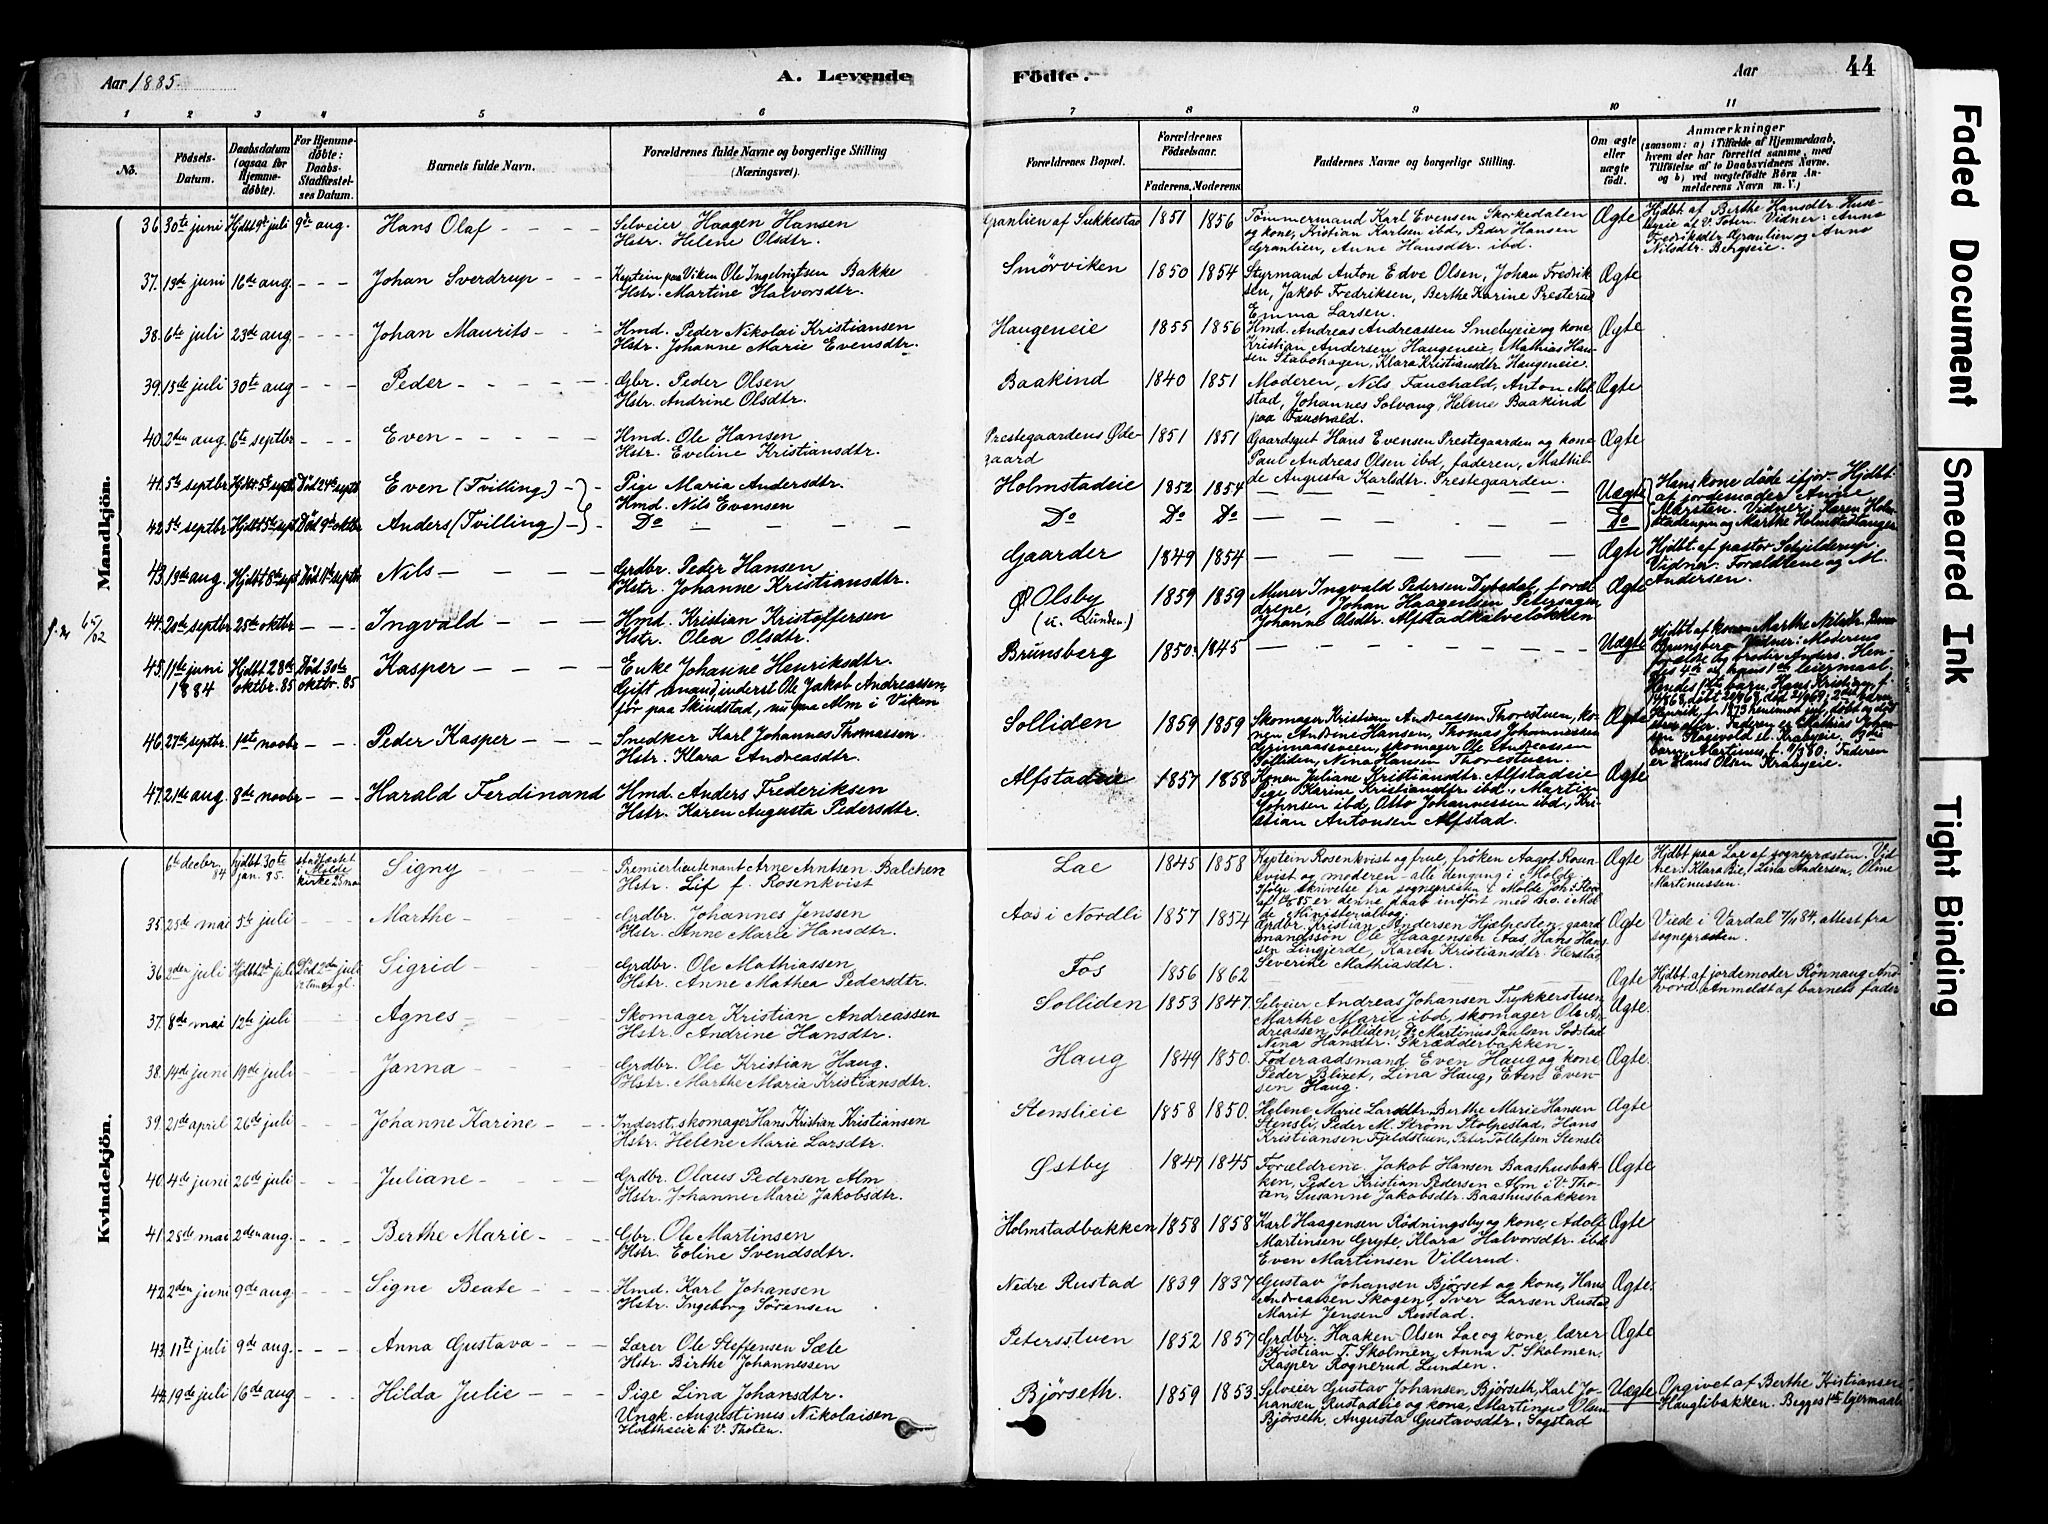 Aar 1885.
A. Levende
Fødte.
Aar
44
1 2 3 4 5 6 7 8 9 10 11
No. Fødsels-Datum. Daabsdatum (ogsaa for Hjemmedøbte). For Hjemmedøbte: Daabs-Stadfæstelses Datum. Barnets fulde Navn. Forældrenes fulde Navne og borgerlige Stilling (Næringsvei). Forældrenes Bopæl. Forældrenes Fødselsaar. Faderens. Moderens. Faddernes Navne og borgerlige Stilling. Om ægte eller uægte født. Anmærkninger (saasom: a) i Tilfælde af Hjemmedaab, hvem der har forrettet samme, med Tilføielse af to Daabsvidners Navne, og b) ved uægtefødte Børn Anmelderens Navn m. V.)
Mandkjön.
36. 30te juni Hjdbt 9de juli 9de aug. Hans Olaf Selveier Haagen Hansen Hstr. Helene Olsdtr. Granlien af Sukkestad 1851 1856 Tømmermand Karl Evensen Skorkedalen og kone, Kristian Karlsen ibd, Peder Hansen Granlien, Anne Hansdtr. ibd. Ægte Hjdbt af Berthe Hansdtr. af V. Toten. Vidner: Anne Fredriksdtr. Granlien og Anne Nilsdtr. Bergseie.
37. 19de juni 16de aug. Johan Sverdrup Kaptein paa Viken Ole Ingebrigtsen Bakke Hstr. Martine Halvorsdtr. Smørviken 1850 1854 Styrmand Anton Edve Olsen, Johan Fredriksen, Jakob Fredriksen, Berthe Karine Presterud Emma Larsen. Ægte
38. 6te juli 23de aug. Johan Maurits Hmd. Peder Nikolai Kristiansen Hstr. Johanne Marie Evensdtr. Haugeneie 1855 1856 Hmd. Andreas Andreassen Smebyeie og kone Kristian Andersen Haugeneie, Mathias Hansen Stabohagen, Klara Kristiansdtr. Haugeneie. Ægte
39. 15de juli 30te aug Peder Gbr. Peder Olsen Hstr. Andrine Olsdtr. Baakind 1840 1851 Moderen, Nils Fauchald, Anton Melstad, Johannes Solvang, Helene Baakind paa Fauchald. Ægte
40. 2den aug. 6te septbr Even Hmd. Ole Hansen Hstr. Eveline Kristiansdtr. Prestegaardens Ødegaard 1851 1851 Gaardsgut Hans Evensen Prestegaarden og kone Paul Andreas Olsen ibd, faderen, Mathilde Augusta Karlsdtr. Prestegaarden. Ægte
41. 5te septbr Hjdbt 5te septbr Död 24de septbr Even (Tvilling) Pige Maria Andersdtr. Hmd. Nils Evensen Holmstadeie 1852 1854 Uægte Hans kone døde ifjor. Hjdbt af jordemoder Anne Marsten. Vidner: Karen Holmstadengen og Marthe Holmstadhagen
42. 5te septbr Hjdbt 5te septbr Död 9de oktbr Anders (Tvilling) Do Do Do Do Do
43. 19de aug. Hjdbt 8de septbr Nils Grdbr. Peder Hansen Hstr. Johanne Kristiansdtr. Gaarder 1849 1854 Ægte Hjdbt. af pastor Schjelderup. Vidner: Forældrene og M. Andersen.
44. 20de septbr 25de oktbr Ingvald Hmd. Kristian Kristoffersen Hstr. Olea Olsdtr. Ø Olsby (u. Lunden) 1859 1859 Murer Ingvald Pedersen, forældrene, Johan Haagensen Petershagen Johanne Olsdtr. Alfstadkalveløkken Ægte
45. 11te juni 1884 Hjdbt 28de oktbr. 85 Död 30te oktbr. 85 Kasper Enke Johanne Henriksdtr. Gift mand, inderst Ole Jakob Andreassen, før paa Skindstad, nu paa Alm i Viken Brunsberg 1850 1845 Uægte Hjdbt af konen Marthe Nilsdtr. Brunsberg. Vidner: Moderens forældre og broder Anders. Hendes 4de og hans 1ste leiermaal.
46. 27de septbr. 1ste novbr Peder Kasper Snedker Karl Johannes Thomassen. Hstr. Klara Andreasdtr. Solliden 1859 1859 Skomager Kristian Andreassen Thorestuen, konen Andrine Hansen, Thomas Johannessen Grimaasveen, skomager Ole Andreassen Solliden, Nina Hansen Thorestuen. Ægte
barn, Martinus, f. 1/3 80. Faderen er Hans Olsen Krabyeie.
47. 21de aug. 8de novbr Harald Ferdinand Hmd. Anders Frederiksen Hstr. Karen Augusta Pedersdtr. Alfstadeie 1857 1858 Konen Juliane Kristiansdtr. Alfstadeie Pige Karine Kristiansdtr. ibd., Martin Johnsen ibd, Otto Johannessen ibd, Kristian Antonsen Alfstad. Ægte
Kvindekjön.
6te decbr 84 hjdbt 30te jan. 85. stadfæstet i Molde kirke 25 mai Signy Premierlieutenant Arne Arntsen Balchen Hstr. Lif f. Rosenkvist Lae 1845 1858 Kaptein Rosenkvist og frue, frøken Aagot Rosenkvist og moderen – alle dengang i Molde. Ifølge skrivelse fra sognepræsten i Molde er denne daab indført med no. i Molde Ministerialbog. Ægte Hjdbt paa Lae af sognepræsten. Vidner: Klara Bie, Lina Andersen, Oline Martinussen.
35. 25de mai 5te juli Marthe Grdbr. Johannes Jenssen Hstr. Anne Marie Hansdtr. Aas i Nordli 1857 1854 Grdbr. Kristian Andersen Hjelpesten, gaardmandssøn Ole Haagensen Aas, Hans Hansen Lingjerde, Karen Kristiansdtr. Herstad Severine Mathiasdtr. Ægte Viede i Vardal 7/11 84, attest fra sognepræsten.
36. 2den juli Hjdbt 2de juli Död 2den juli Sigrid Grdbr. Ole Mathiassen Hstr. Anne Mathea Pedersdtr. Fos 1856 1862 Ægte Hjdbt. af jordemoder Rønnaug Andvord. Anmeldt af barnets fader
37. 8de mai 12te juli Agnes Skomager Kristian Andreassen Hstr. Andrine Hansdtr. Solliden 1853 1847 Selveier Andreas Johansen Trykkerstuen, Marthe Marie ibd, skomager Ole Andreassen, Solliden, Do Martinus Paulsen Sodstad Nina Hansdtr. Skrædderbakken. Ægte.
38. 14de juni 19de juli Janna Grdbr. Ole Kristian Haug. Hstr. Marthe Maria Kristiansdtr. Haug 1849 1850. Føderaadsmand Even Haug og kone Peder Blixet, Lina Haug, Even Evensen Haug. Ægte.
39. 21de april 26de juli Johanne Karine Inderst, skomager Hans Kristian Kristiansen Hstr. Helene Marie Larsdtr. Stenslieie 1858 1850. Helene Marie Larsdtr. Berthe Marie Hansen Stensli, Peder M. Strøm Stolpestad, Hans Kristiansen Fjeldstuen, Peter Tollefsen Stensli Ægte
40. 4de juni 26de juli Juliane Grdbr. Olaus Pedersen Alm Hstr. Johanne Marie Jakobsdtr. Østby 1847 1845 Forældrene. Jakob Hansen Baashusbakken, Peder Kristian Pedersen Alm i V. Thoten, Susanne Jakobsdtr. Baashusbakken Ægte.
41. 28de mai 2den aug. Berthe Marie Gbr. Ole Martinsen Hstr. Eoline Svendsdtr. Holmstadbakken 1858 1858 Karl Haagensen Rødningsby og kone, Adolf Martinsen Gryte, Klara Halvorsdtr. ibd Even Martinsen Villerud. Ægte
42. 2den juni 9de aug. Signe Beate Hmd. Karl Johansen Hstr. Ingeborg Sørensen Nedre Rustad 1839 1837 Gustav Johansen Bjørset og kone, Hans Andreassen Skogen, Iver Larsen Rustad Marit Jensen Rustad. Ægte.
43. 11te juli 9de aug. Anna Gustava Lærer Ole Steffensen Sæte Hstr. Birthe Johannessen Petersstuen 1852 1857 Grdbr. Haaken Olsen Lae og kone, lærer Kristian T. Skolmen, Anna T. Skolmen, Kasper Rognerud, Lunden. Ægte
44. 19de juli 16de aug Hilda Julie Pige Lina Johansdtr. Ungk. Augustinus Nikolaisen i V. Thoten. Bjørseth. 1859 1853 Selveier Gustav Johansen Bjørseth, Karl Johansen, Rustadeie og kone, Martinus Olsen Bjørseth, Augusta Gustavsdtr. Sogstad Uægte Opgivet af Berthe Kristiansen Hauglibakken. Begges 1ste leiermaal
Faded Document
Smeared Ink
Tight Binding